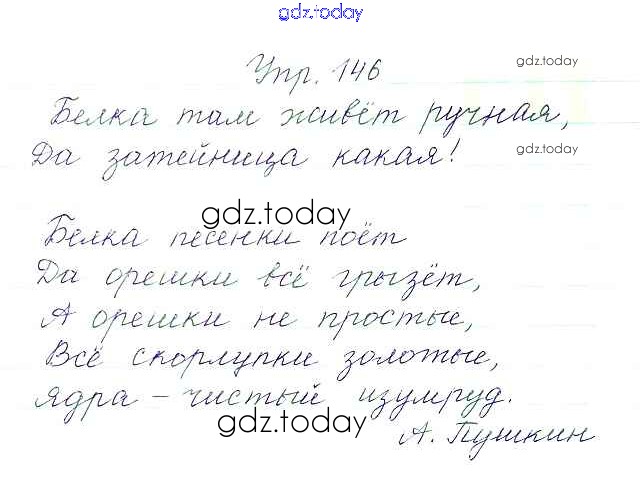 gdz.today
Упр. 146
gdz.today
Белка там живёт ручная,
Да затейница какая!
gdz.today
gdz.today
Белка песенки поёт
Да орешки всё грызёт,
А орешки не простые,
Всё скорлупки золотые,
Ядра – чистый изумруд.
gdz.today
А. Пушкин